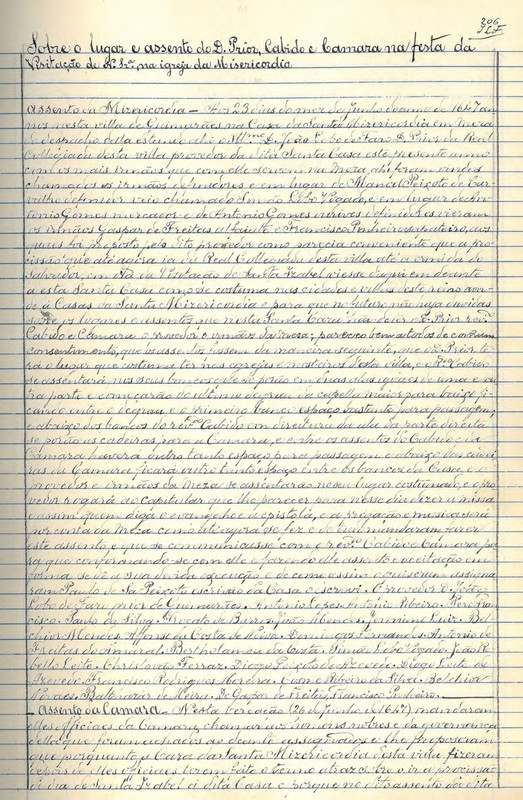 206
Sobre o lugar e assento do D. Prior, Cabido e Camara na festa da
Visitação de N. Srª, na igreja da Misericordia
Assento da Misericordia — Aos 23 dias do mez de Junho do anno de 1647 an-
nos nesta villa de Guimarães na Casa da Santa Misericordia em meza
de despacho della estando ahi o Illmo D. João Lobo de Faro D. Prior da Real
Collegiada desta villa provedor da dita Santa Casa este presente anno
com os mais irmãos que com elle servem na Meza ahi foram vindos
chamados os irmãos definidores e em lugar de Manoel Peixoto de Car-
valho definidor veio chamado Simão Lobo Vogado, e em lugar de An-
tonio Gomes mercador e de Antonio Gomes ourives definidores vieram
os irmãos Gaspar de Freitas alfaiate e Francisco Pinheiro sapateiro, aos
quaes foi proposto pelo dito provedor como parecia conveniente que a pro-
cissão que até agora ia da Real Collegiada desta villa até a ermida do
Salvador, em dia da Visitação de Santa Izabel viesse daqui em deante
a esta Santa Casa como se costuma nas cidades e villas deste reino aon-
de há Casas da Santa Misericordia e para que no futuro não haja duvidas
sobre os lugares e assentos que nesta Santa Casa hão de ter D. Prior revdo
Cabido e Camara o provedor e irmãos da meza; pareceu bem a todos de commum
consentimento, que os assentos fossem da maneira seguinte, que o D. Prior te-
rá o lugar que costuma ter nas egrejas e mosteiros desta villa, e o Rdo Cabido
se assentará nos seus bancos que se porão em duas alas iguaes de uma e ou-
tra parte e começarão do ultimo degrau da capella maior para baixo fi-
cando entre o degrau e o primeiro banco espaço bastante para passagem,
e abaixo dos bancos do revdo Cabido em directura da ala da parte direita
se porão as cadeiras para a Camara, e entre os assentos do Cabido e da
Camara haverá outro tanto espaço para passagem e abaixo das cadei-
ras da Camara ficará outro tanto espaço entre os bancos da Casa, e o
provedor e irmãos da Meza se assentarão no seu lugar costumado, e o pro-
vedor rogará ao capitular que lhe parecer para nesse dia dizer a missa
e assim quem diga o evangelho e epistola, e a pregação e musica será
por conta da Meza como até agora se fez e de tudo mandaram fazer
este assento, e que se communicasse com o revdo Cabido e Camara pa-
ra que conformando-se com elle e fazendo elle assento e aceitação em
forma se dê a sua devida execução e de como assim o quiseram assigna-
ram Paulo de Sá Peixoto escrivão da Casa o escrevi. O provedor D. João
Lobo de Faro prior de Guimarães. Antonio Lopes. Antonio Ribeiro. Pero Fran-
cisco. Paulo da Silva. de Barros. João Mendes. Jeronimo Luiz. Bel-
chior Mendes. Affonso da Costa de Domingos Fernandes. Antonio de
Freitas do Amaral. Bertholameu da Costa. Simão Lobo Vogado. João Re-
bello Leite. Christovão Ferraz. Diogo Peixoto de Azevedo. Diogo Leite de
Azevedo. Francisco Rodrigues Cosme Ribeiro da Silva. Belchior
Moraes. Baltezar de Meira. De Gaspar de Freitas. Francisco Pinheiro.
— Assento da Camara — Nesta vereação (26 de Junho de 1647) mandaram
elles officiaes da Camara, chamar aos homens nobres e da governança
della que foram achados ao deante assignados e lhe propuseram
que porquanto a Casa da Santa Misericordia desta villa fizeram
e elles officiaes fazerem feito o termo atraz sobre o vir a procissão
o dia de Santa Izabel á dita Casa e porque no dito assento da dita